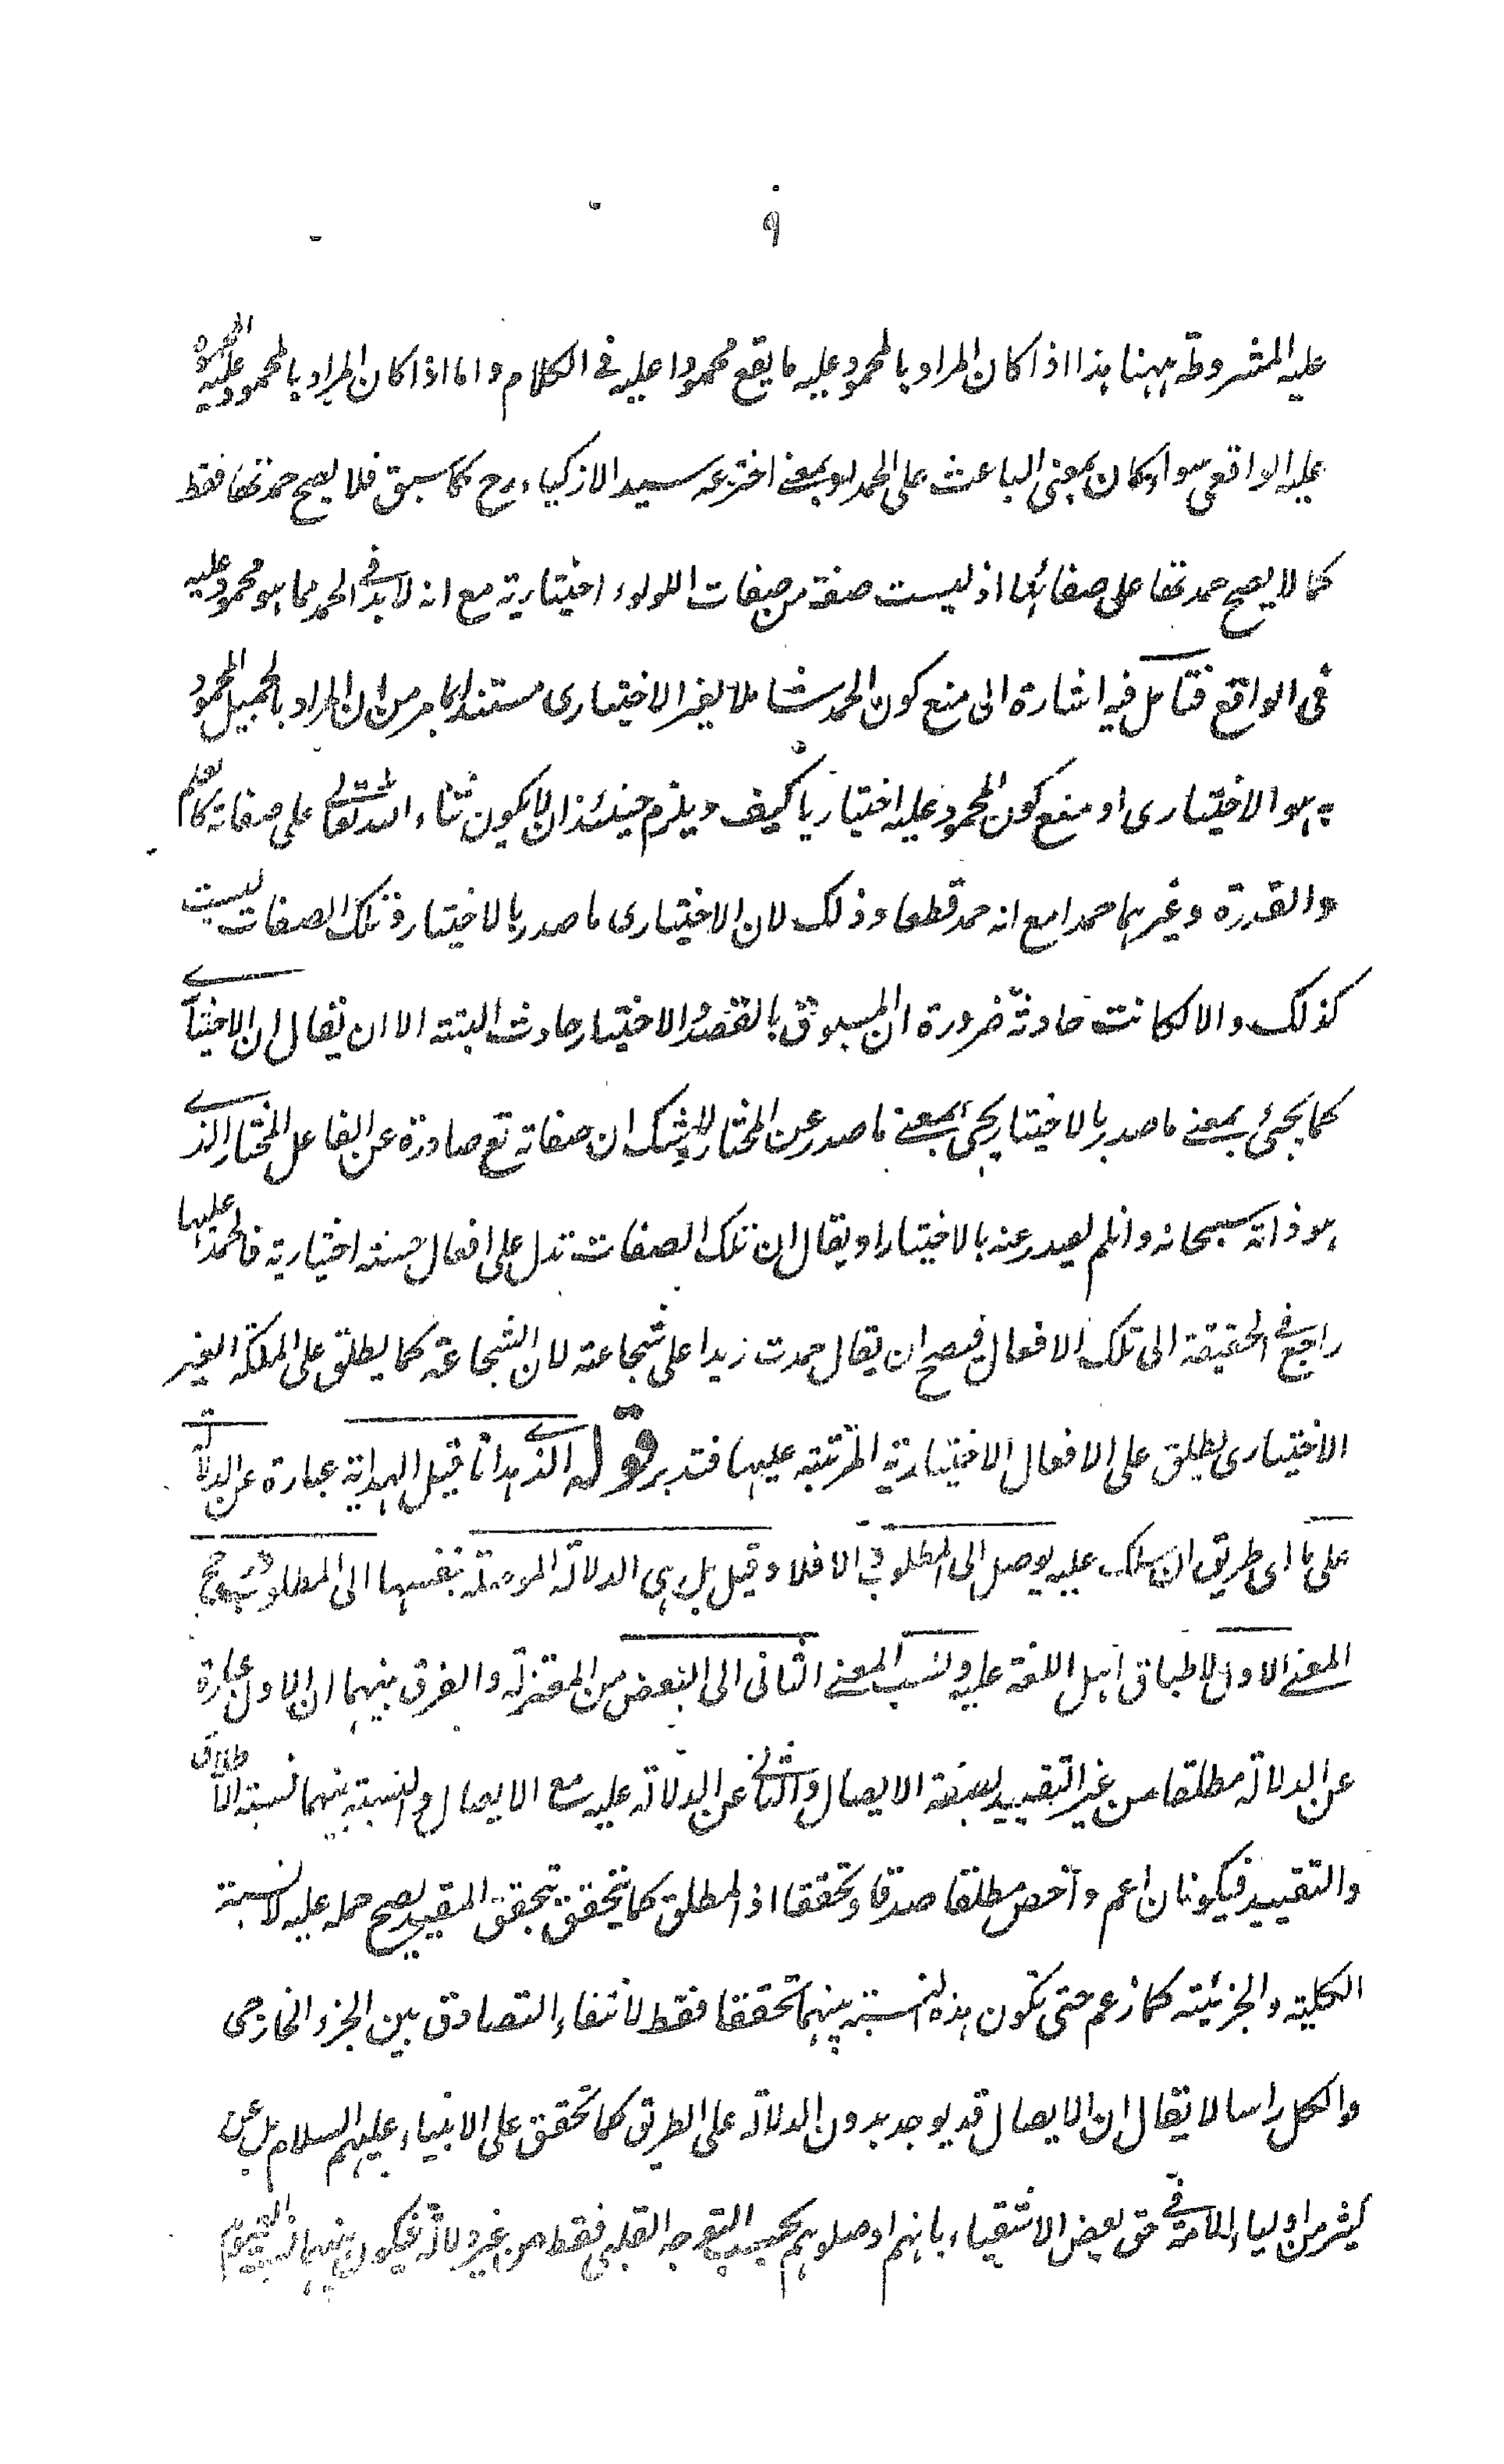 ٩
عليه المشروطة ههنا هذا اذا كان المراد بالمحمود عليه ما يقع محمودا عليه فى الكلام واما اذا كان المراد بالمحمود عليه المحمود
عليه الواقعى سواء كان بمعنى الباعث على الحمد او بمعنى اخترعه سيد الازكياء رح كما سبق فلا يصح حمدتها فقط
كما لا يصح حمدتها على صفائها اذ ليست صفة من صفات اللولوء اختيارية مع انه لابد فى الحمد مما هو محمود عليه
فى الواقع فتامل فيه اشارة الى منع كون الحمد شاملا لغير الاختيارى مستندا كما مر من ان المراد بالجميل المحمود
به هو الاختيارى او منع كون المحمود عليه اختياريا كيف ويلزم حينئذ ان لا يكون ثناء الله تعالى على صفاته كالعلم
والقدرة وغيرهما حمدا مع انه حمد قطعا وذلك لان الاختيارى ما صدر بالاختيار وتلك الصفات ليست
كذلك والا لكانت حادثة ضرورة ان المسبوق بالقصد والاختيار حادث البتة الا ان يقال ان الاختيارى
كما يجئ بمعنى ما صدر بالاختيار يجئ بمعنى ما صدر عن المختار ولا شك ان صفاته تع صادرة عن الفاعل المختار الذى
هو ذاته سبحانه وان لم يصدر عنه بالاختيار او يقال ان تلك الصفات تدل على افعال حسنة اختيارية فالحمد عليها
راجع فى الحقيقة الى تلك الافعال فيصح ان يقال حمدت زيدا على شجاعته لان الشجاعة كما يطلق على الملكة الغير
الاختيارى يطلق على الافعال الاختيارية المترتبة عليها فتدبر قوله الذى هدانا قيل الهداية عبارة عن الدلالة
على ما اى طريق ان سلك عليه يوصل الى المطلوب والا فلا وقيل بل هى الدلالة الموصلة بنفسها الى المطلوب ورجح
المعنى الاول لاطباق اهل اللغة عليه ونسب المعنى الثانى الى البعض من المعتزلة والفرق بينهما ان الاول عبارة
عن الدلالة مطلقا من غير التقييد بصفة الايصال والثانى عن الدلالة عليه مع الايصال والنسبة بينهما نسبة الاطلاق
والتقييد فيكونان اعم واخص مطلقا صدقا وتحققا اذ المطلق كما يتحقق بتحقق المقيد يصح حمله عليه لا نسبة
الكلية والجزئية كما زعم حتى تكون هذه النسبة بينهما تحققا فقط لانتفاء التصادق بين الجزء الخارجى
والكل راسا لا يقال ان الايصال قد يوجد بدون الدلالة على الطريق كما تحقق على الانبياء عليهم السلام بل عن
كثير من اولياء الامة فى حق بعض الاشقياء بانهم اوصلوهم بحسب التوجه القلبى فقط من غير دلالة فيكون بينهما